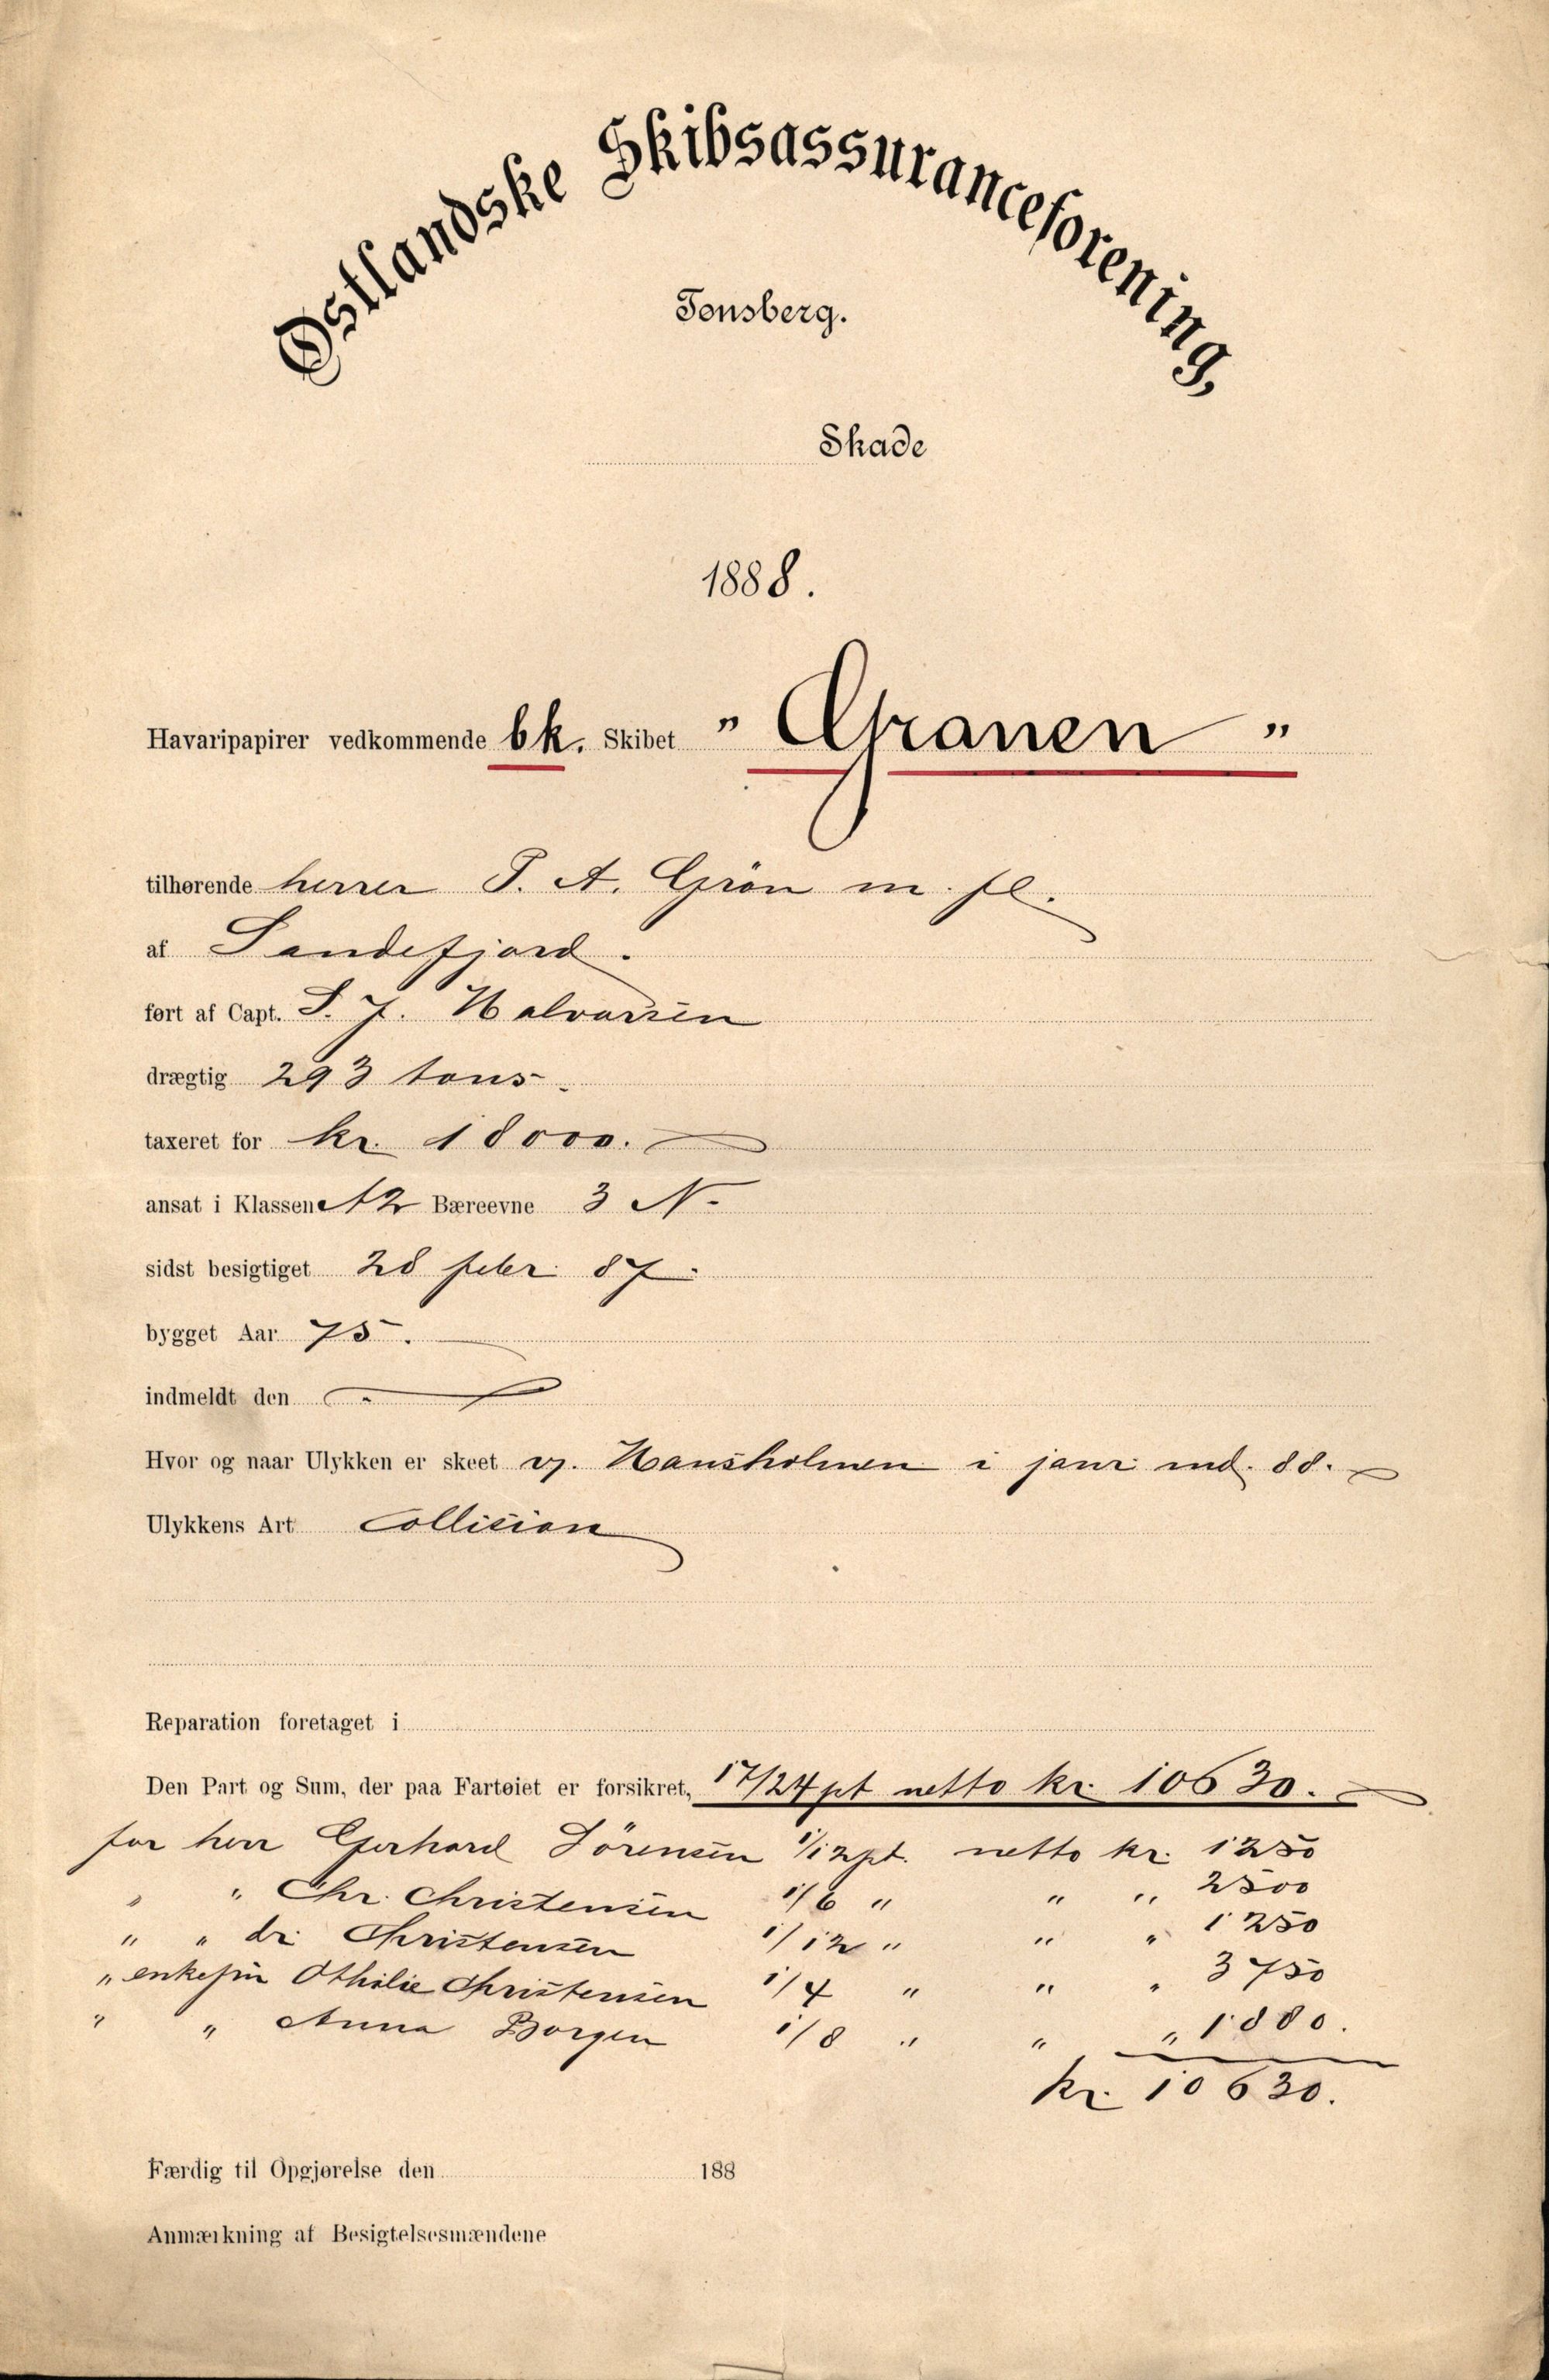 Østlandske Skibsassuranceforening,
Tønsberg.
Skade
1888.
Havaripapirer vedkommende bk. Skibet "Granen"
tilhørende herrer P. A. Grön m. fl.
af Sandefjord.
ført af Capt. S. J. Halvorsen
drægtig 293 tons.
taxeret for kr. 18000.
ansat i Klassen A2 Bæreevne 3 N.
sidst besigtiget 28 febr. 87.
bygget Aar 75.
indmeldt den
Hvor og naar Ulykken er skeet v/. Hansholmen i janr. md. 88.
Ulykkens Art Collision
Reparation foretaget i
Den Part og Sum, der paa Fartøiet er forsikret, 17/24 pt netto kr. 10630.
for herr Gerhard Sörensen 1/12 pt. netto kr. 1250
" " Chr. Christensen 1/6 " " " 2500
" " dr. Christensen 1/12 " " " 1250
" enkefru Othilie Christensen 1/4 " " " 3750
" " Anna Borgen 1/8 " " " 1880.
kr. 10630.
Færdig til Opgjørelse den 188
Anmærkning af Besigtelsesmændene